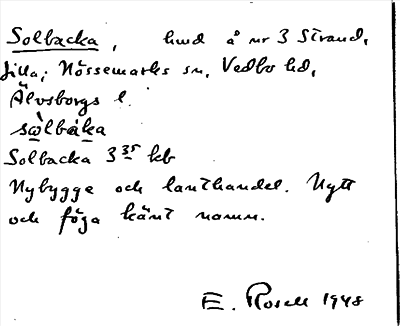 Solbacka, hmd å nr 3 Strand,
Lilla; Nössemarks sn, Vedbo hd,
Älvsborgs l.
sòlbáka
Solbacka 3 35 kb
Nybygge och lanthandel. Nytt
och föga känt namn.
E. Rosell 1948